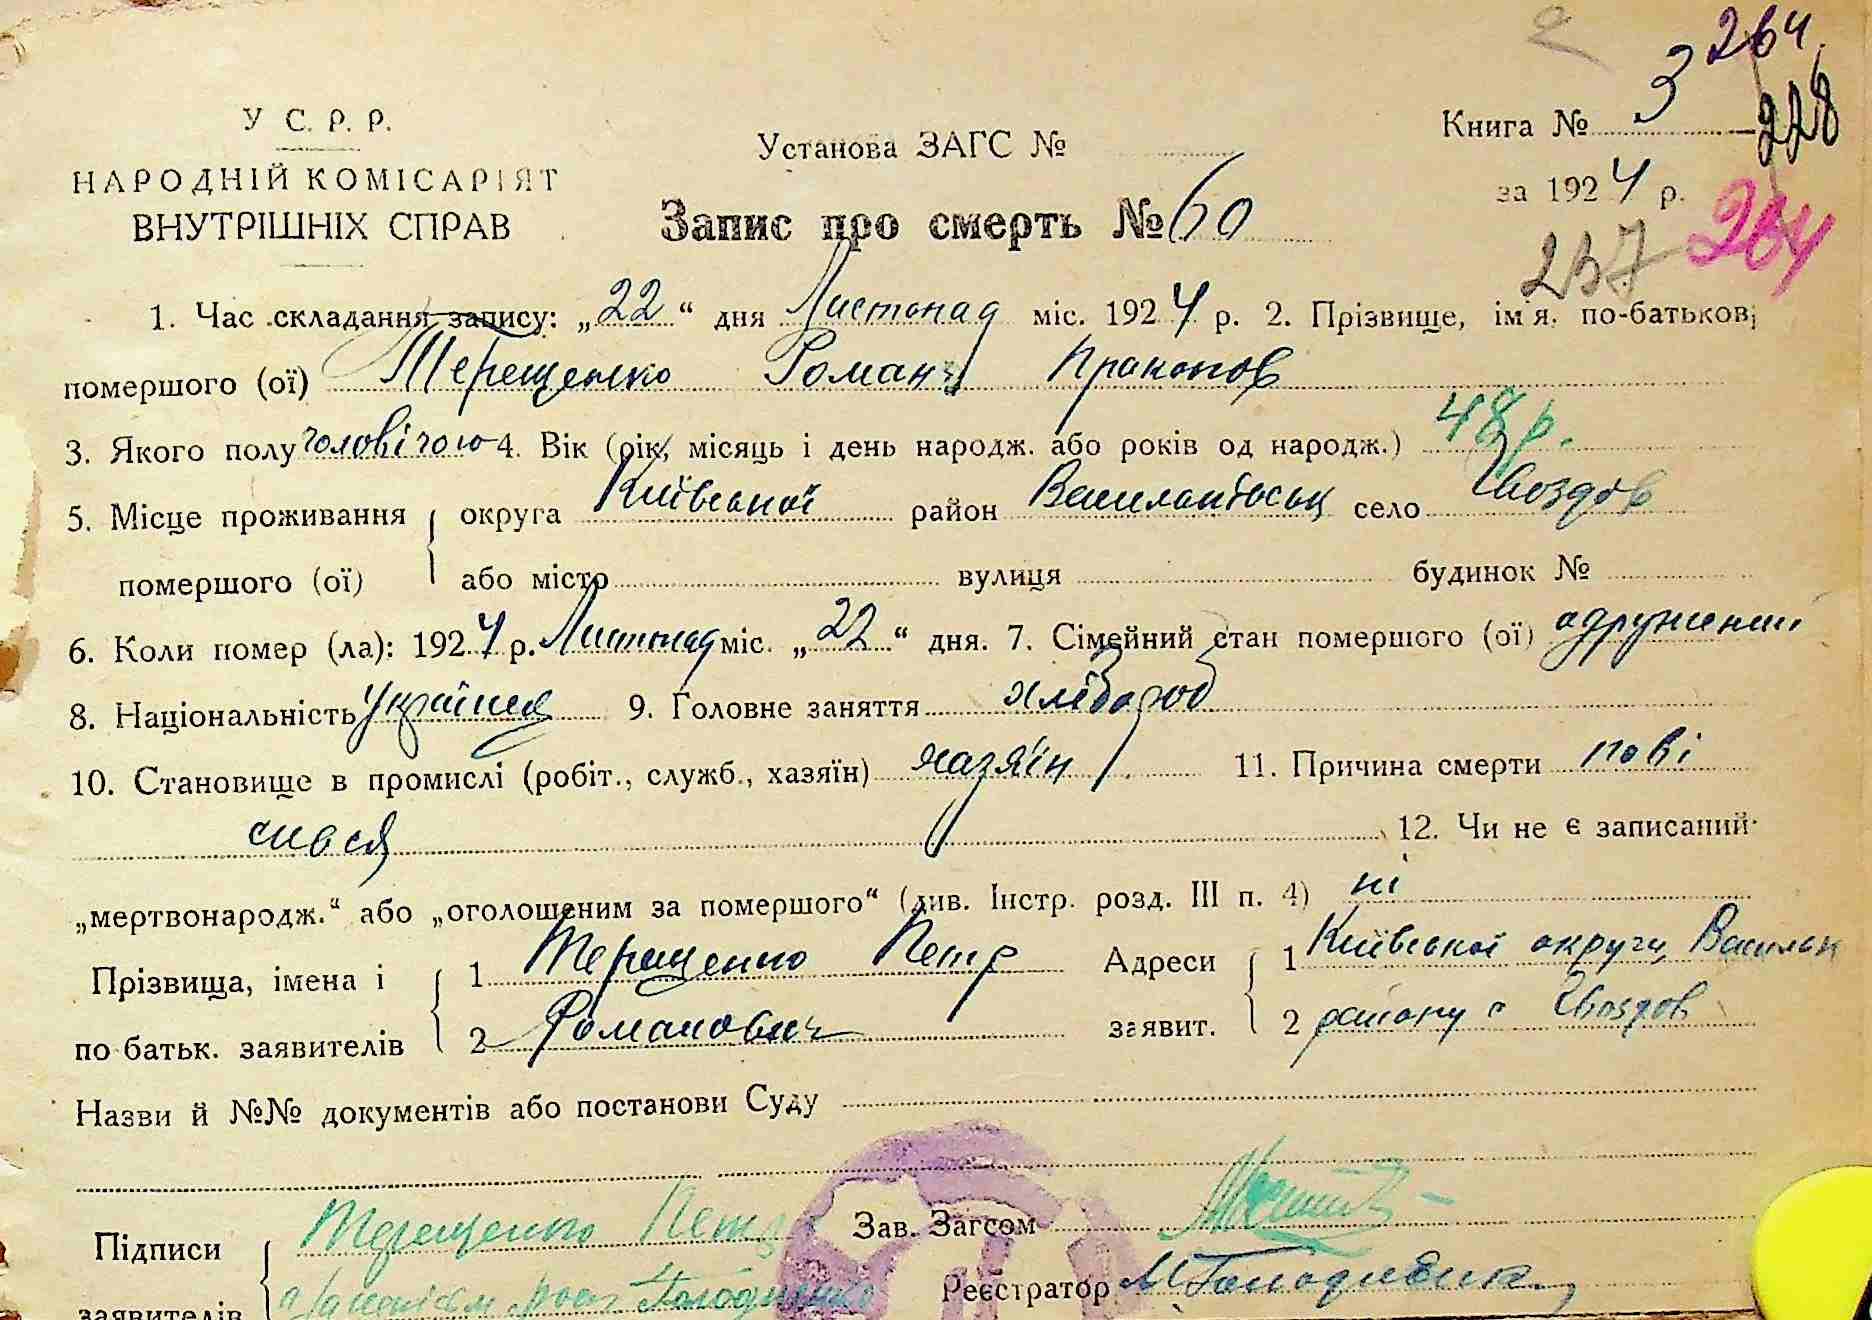 264
Книга № 3 228
У С. Р. Р.
Установа ЗАГС №
НАРОДНІЙ КОМІСАРІЯТ
за 1924 р.
ВНУТРІШНІХ СПРАВ
Запис про смерть № 60
237 264
1. Час складання запису: „22“ дня Листопад міс. 1924 р. 2. Прізвище, імя, по-батькові
помершого (ої) Терещенко Роман Пракопов
3. Якого полу чоловічого 4. Вік (рік, місяць і день народж. або років од народж.) 48 р.
5. Місце проживання округа Київської район село Гвоздов
помершого (ої) або місто вулиця будинок №
6. Коли помер (ла): 1924 р. Листопад міс. „22“ дня. 7. Сімейний стан помершого (ої) одружений
8. Національність Українец 9. Головне заняття хлібороб
10. Становище в промислі (робіт., служб., хазяїн) хазяїн 11. Причина смерти пові
сився 12. Чи не є записаний
„мертвонародж.“ або „оголошеним за помершого“ (див. Інстр. розд. III п. 4) ні
Прізвища, імена і 1 Терещенко Петр Адреси 1 Київської округи, Васильк
по батьк. заявителів 2 Романович заявит. 2 району с Гвоздов
Назви й №№ документів або постанови Суду
Підписи Терещенко Петр Зав. Загсом
заявителів Реєстратор